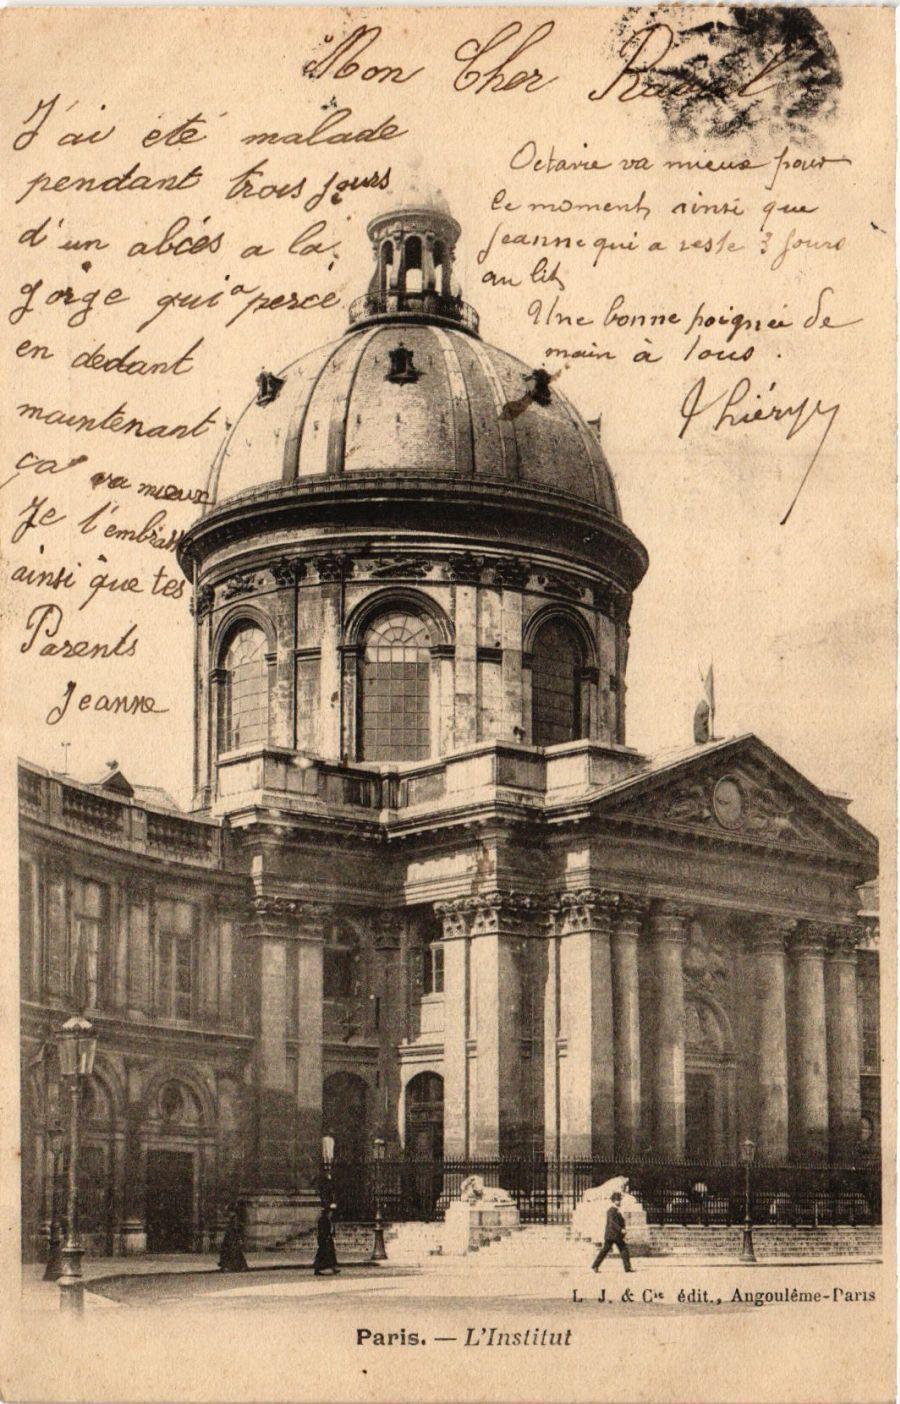 Mon Cher Raoul
J'ai été malade
pendant trois jours
d'un abcés a la
gorge qui a percé
en dedant
maintenant
ça va mieux
Je t'embrasse
ainsi que tes
Parents
Jeanne
Octavie va mieux pour
le moment ainsi que
Jeanne qui a resté 3 jours
au lit
Une bonne poignée de
main à tous.
Thiéry
L. J. & Cie édit., Angoulême-Paris
Paris. — L'Institut